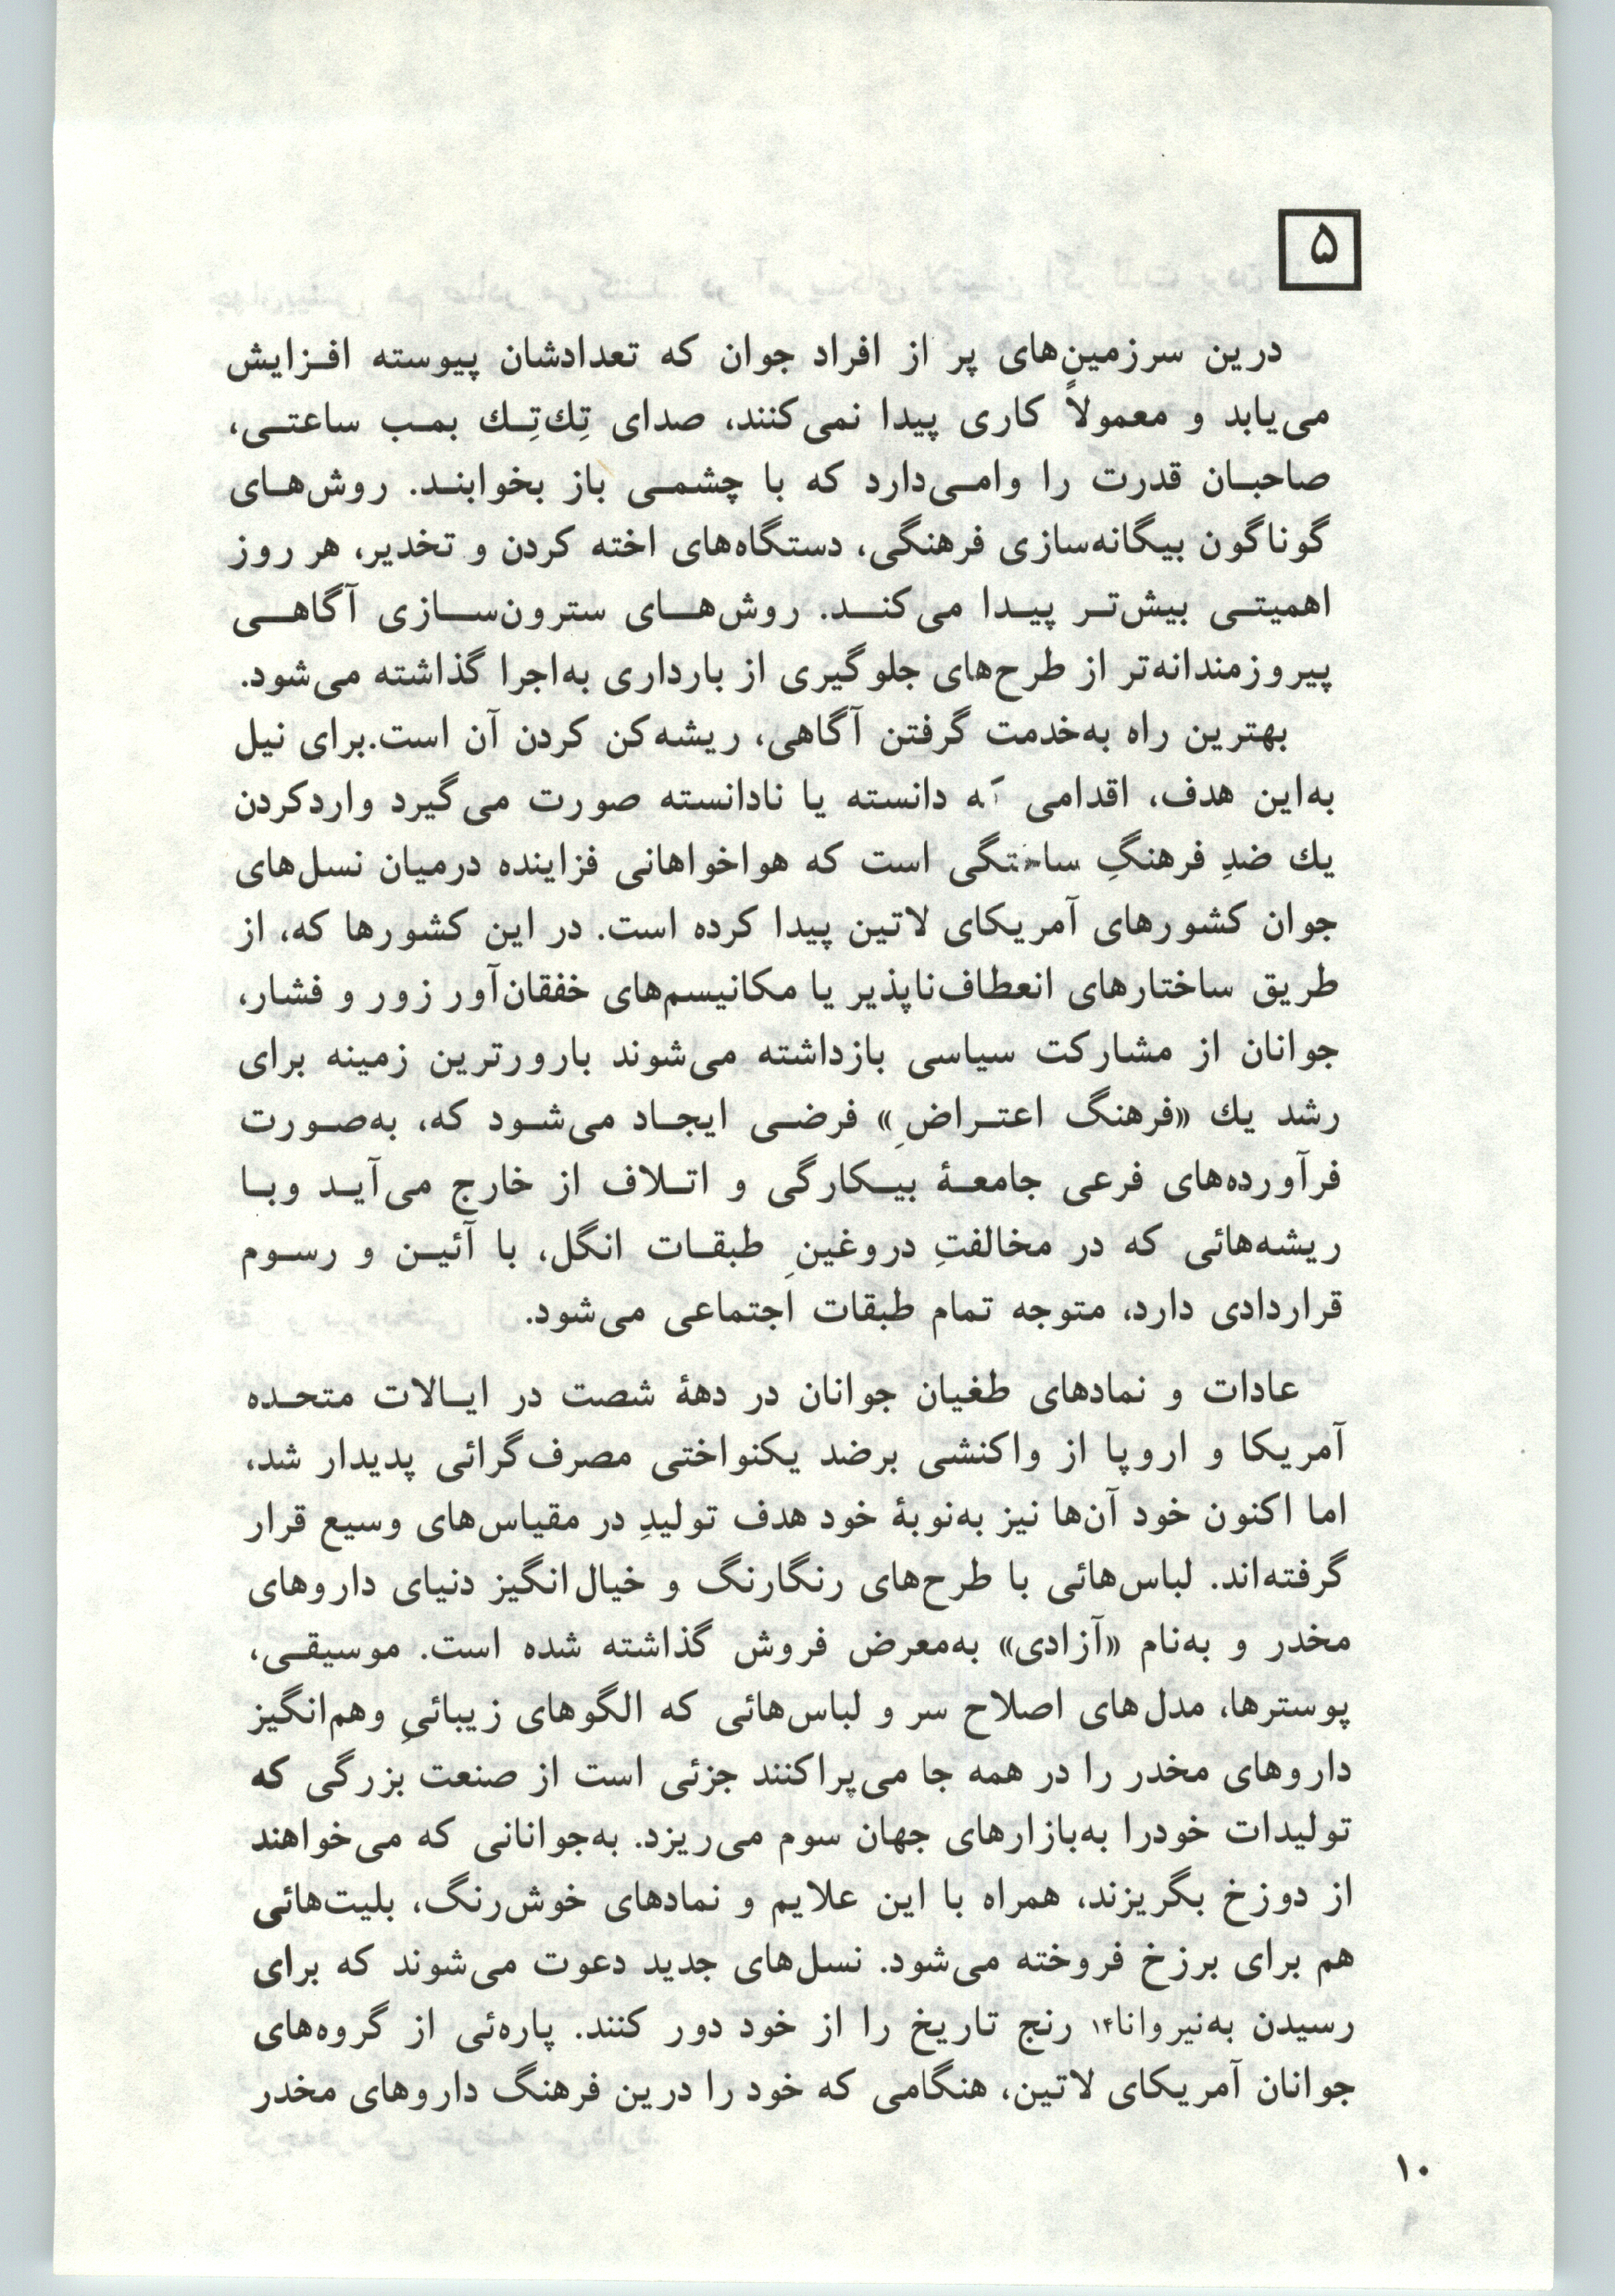 ۵
درین سرزمین‌های پر از افراد جوان که تعدادشان پیوسته افزایش
می‌یابد و معمولاً کاری پیدا نمی‌کنند، صدای تِك‌تِك بمب ساعتی،
صاحبان قدرت را وامی‌دارد که با چشمی باز بخوابند. روش‌های
گوناگون بیگانه‌سازی فرهنگی، دستگاه‌های اخته کردن و تخدیر، هر روز
اهمیتی بیش‌تر پیدا می‌کند. روش‌های سترون‌سازی آگاهی
پیروزمندانه‌تر از طرح‌های جلوگیری از بارداری به‌اجرا گذاشته می‌شود.
بهترین راه به‌خدمت گرفتن آگاهی، ریشه‌کن کردن آن است.برای نیل
به‌این هدف، اقدامی که دانسته یا نادانسته صورت می‌گیرد واردکردن
یك ضدِ فرهنگِ ساختگی است که هواخواهانی فزاینده درمیان نسل‌های
جوان کشورهای آمریکای لاتین پیدا کرده است. در این کشورها که، از
طریق ساختارهای انعطاف‌ناپذیر یا مکانیسم‌های خفقان‌آور زور و فشار،
جوانان از مشارکت سیاسی بازداشته می‌شوند بارورترین زمینه برای
رشد یك «فرهنگ اعتراضِ» فرضی ایجاد می‌شود که، به‌صورت
فرآورده‌های فرعی جامعهٔ بیکارگی و اتلاف از خارج می‌آید وبا
ریشه‌هائی که در مخالفتِ دروغینِ طبقات انگل، با آئین و رسوم
قراردادی دارد، متوجه تمام طبقات اجتماعی می‌شود.
عادات و نمادهای طغیان جوانان در دههٔ شصت در ایالات متحده
آمریکا و اروپا از واکنشی برضد یکنواختی مصرف‌گرائی پدیدار شد،
اما اکنون خود آن‌ها نیز به‌نوبهٔ خود هدف تولیدِ در مقیاس‌های وسیع قرار
گرفته‌اند. لباس‌هائی با طرح‌های رنگارنگ و خیال‌انگیز دنیای داروهای
مخدر و به‌نام «آزادی» به‌معرض فروش گذاشته شده است. موسیقی،
پوسترها، مدل‌های اصلاح سر و لباس‌هائی که الگوهای زیبائیِ وهم‌انگیز
داروهای مخدر را در همه جا می‌پراکنند جزئی است از صنعت بزرگی که
تولیدات خودرا به‌بازارهای جهان سوم می‌ریزد. به‌جوانانی که می‌خواهند
از دوزخ بگریزند، همراه با این علایم و نمادهای خوش‌رنگ، بلیت‌هائی
هم برای برزخ فروخته می‌شود. نسل‌های جدید دعوت می‌شوند که برای
رسیدن به‌نیروانا۱۴ رنج تاریخ را از خود دور کنند. پاره‌ئی از گروه‌های
جوانان آمریکای لاتین، هنگامی که خود را درین فرهنگ داروهای مخدر
۱۰